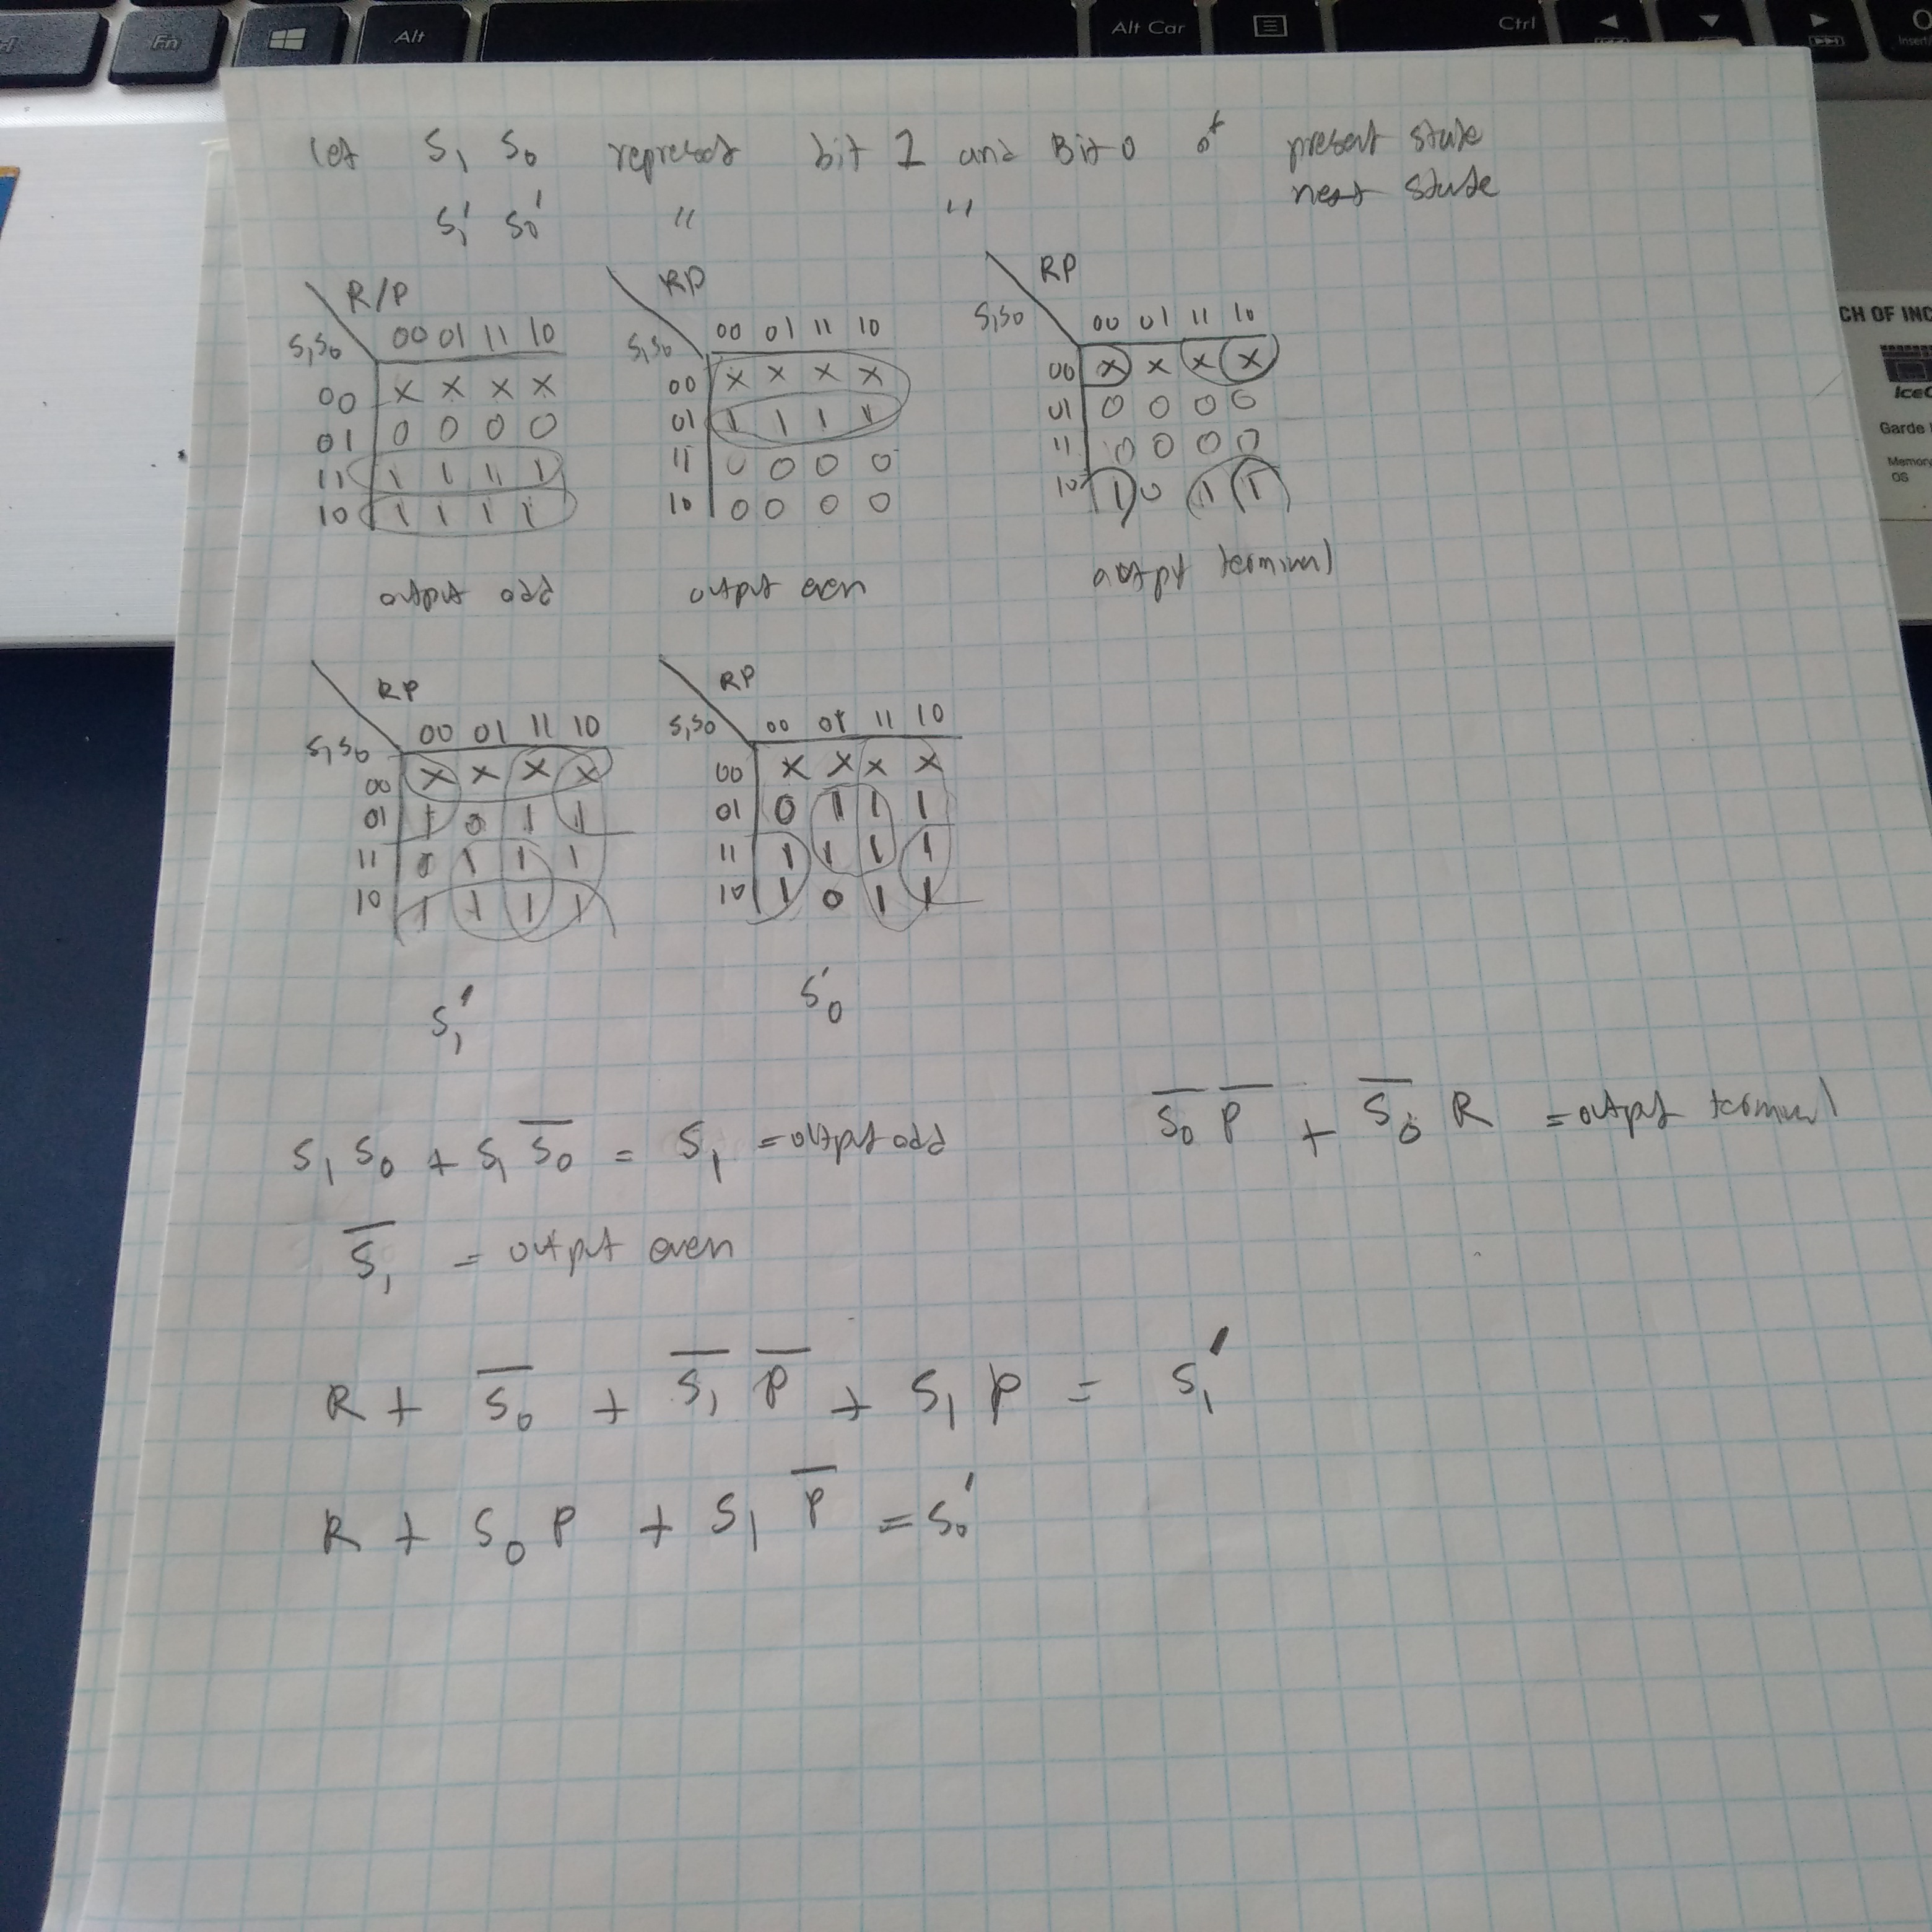 Fn Alt Alt Car Ctrl
Let S₁ S₀ represent bit 1 and Bit 0 of present state
S₁' S₀' " " next state
R/P
S₁S₀ 00 01 11 10
00 X X X X
01 0 0 0 0
11 1 1 1 1
10 1 1 1 1
output odd
RP
S₁S₀ 00 01 11 10
00 X X X X
01 1 1 1 1
11 0 0 0 0
10 0 0 0 0
output even
RP
S₁S₀ 00 01 11 10
00 X X X X
01 0 0 0 0
11 0 0 0 0
10 1 0 1 1
output terminal
RP
S₁S₀ 00 01 11 10
00 X X X X
01 1 0 1 1
11 0 1 1 1
10 1 1 1 1
S₁'
RP
S₁S₀ 00 01 11 10
00 X X X X
01 0 1 1 1
11 1 1 1 1
10 1 0 1 1
S₀'
S₁ S₀ + S₁ S̅₀ = S₁ = output odd
S̅₀ P̅ + S̅₀ R = output terminal
S̅₁ = output even
R + S̅₀ + S̅₁ P̅ + S₁ P = S₁'
R + S₀ P + S₁ P̅ = S₀'
CH OF INC
Garde
Memory
OS